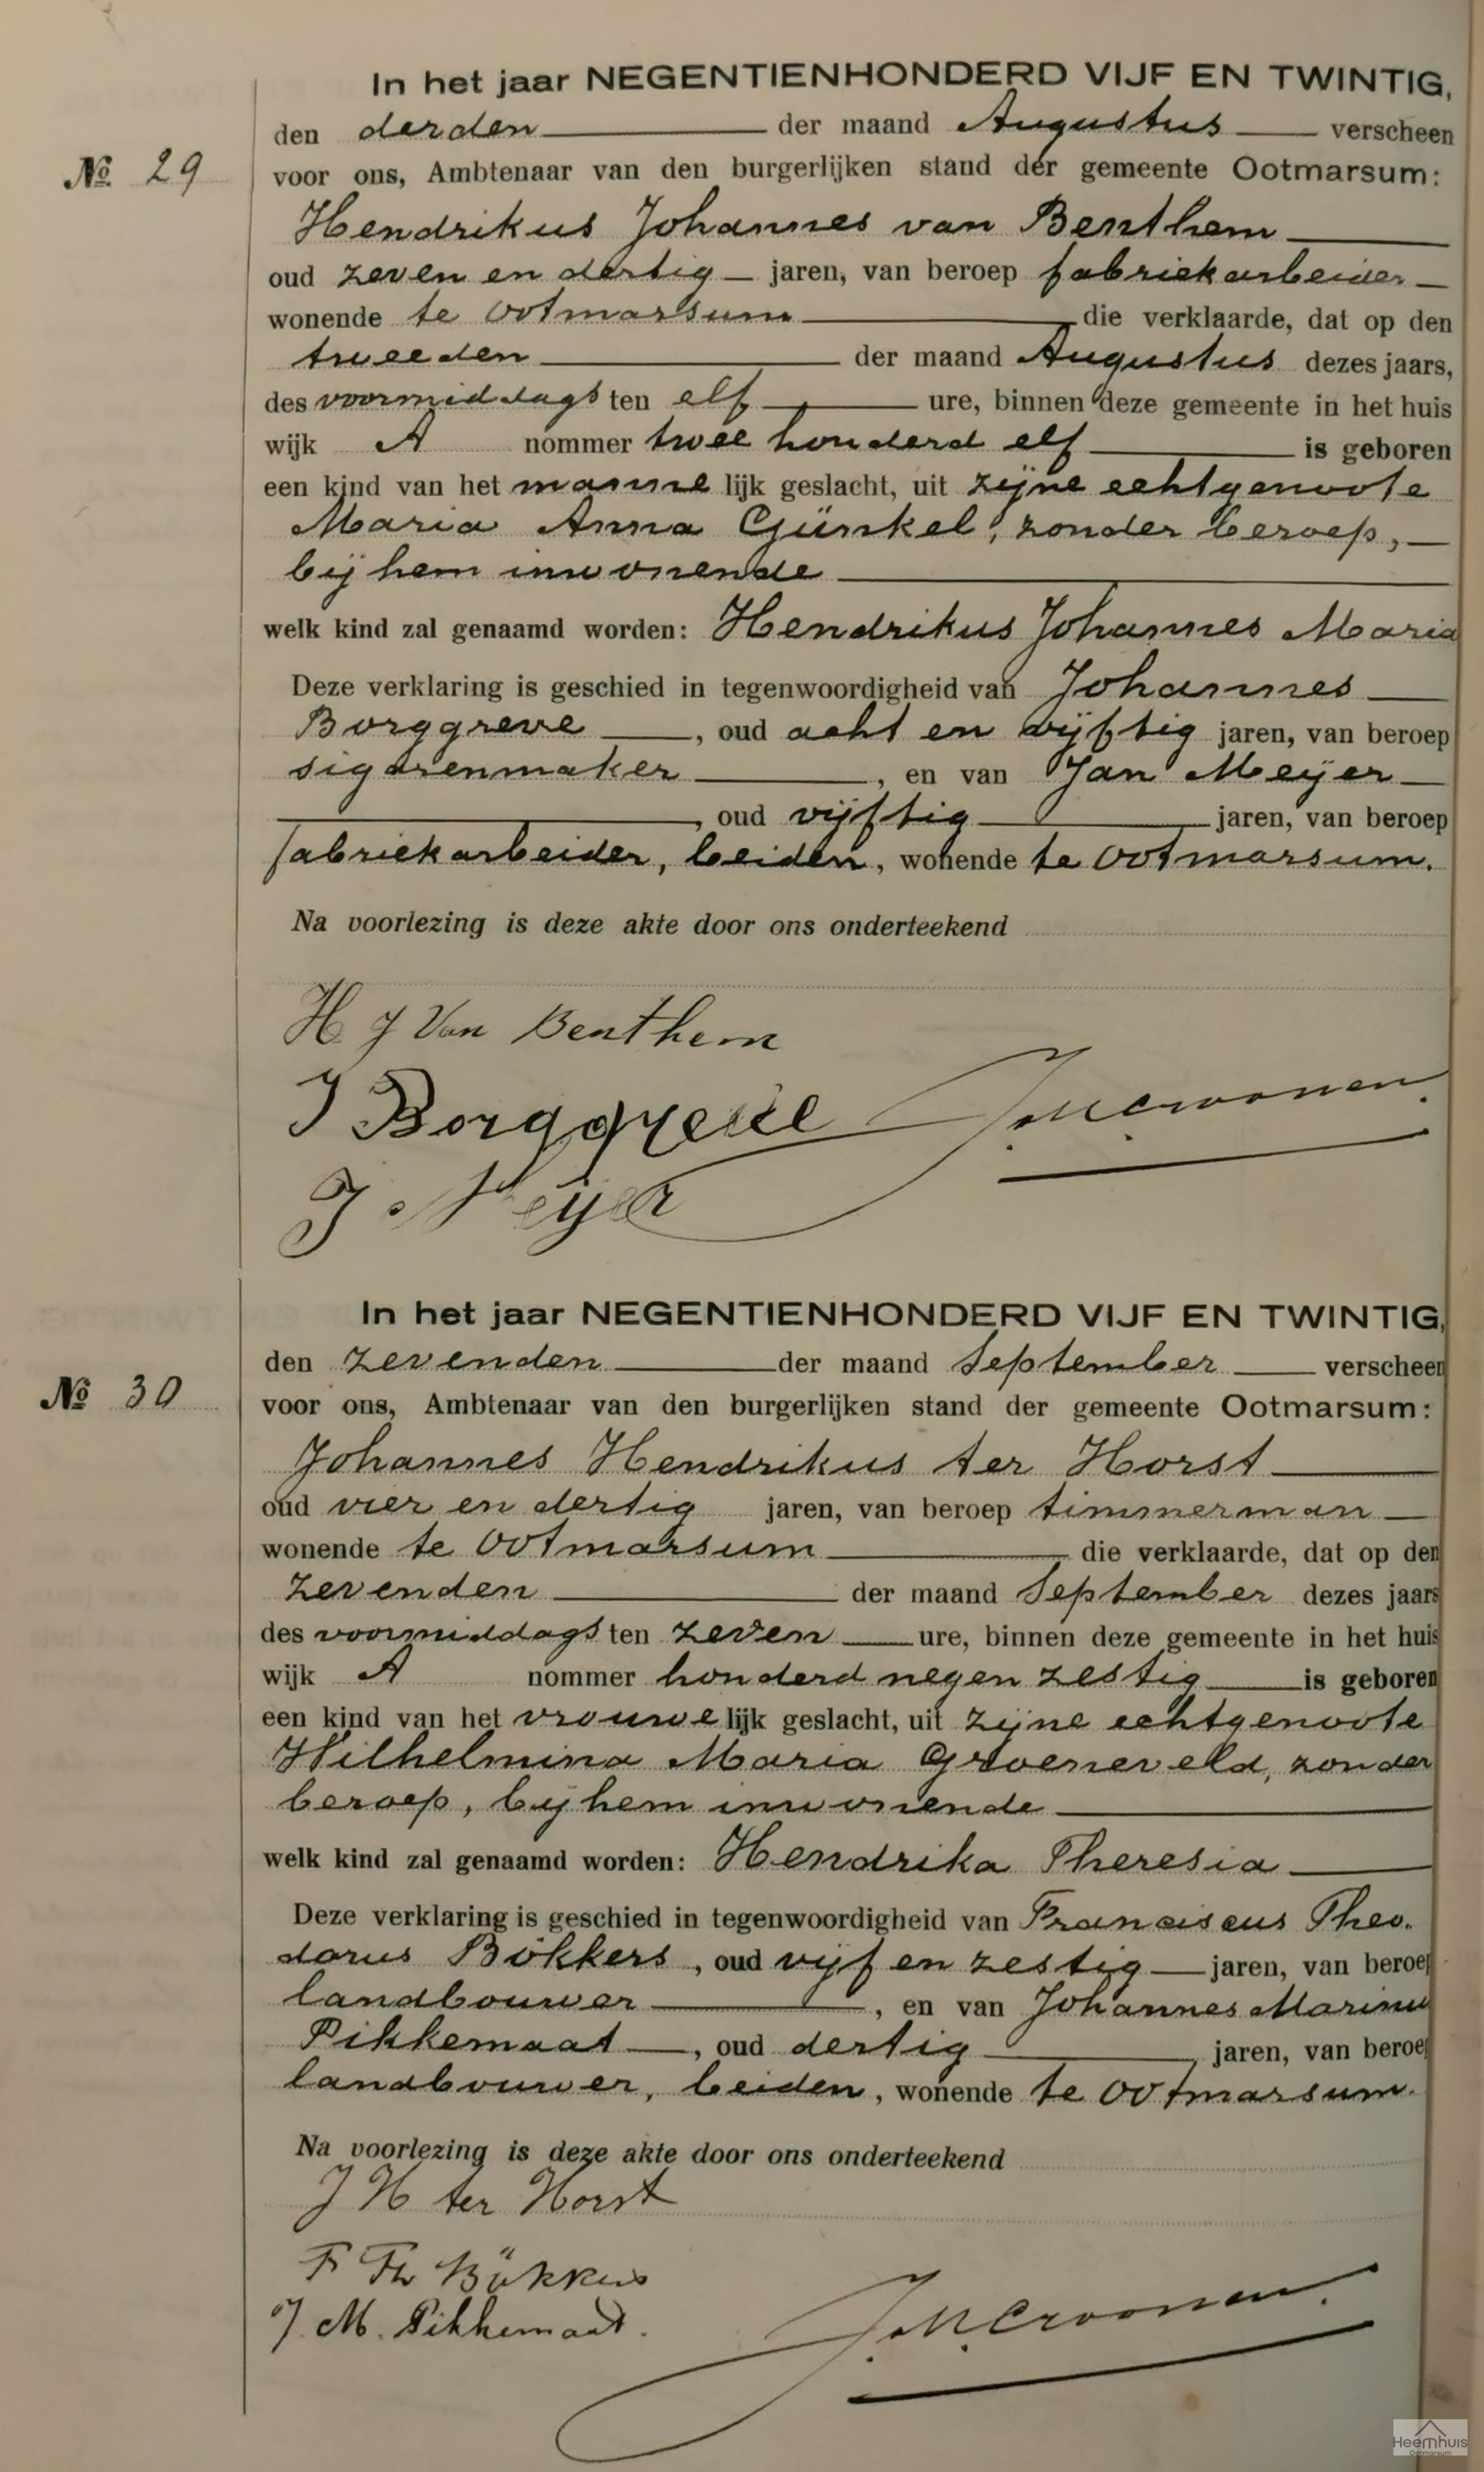 In het jaar NEGENTIENHONDERD VIJF EN TWINTIG,
den derden der maand Augustus verscheen
№ 29
voor ons, Ambtenaar van den burgerlijken stand der gemeente Ootmarsum:
Hendrikus Johannes van Benthem
oud zeven en dertig jaren, van beroep fabriekarbeider
wonende te Ootmarsum die verklaarde, dat op den
tweeden der maand Augustus dezes jaars,
des voormiddags ten elf ure, binnen deze gemeente in het huis
wijk A nommer twee honderd elf is geboren
een kind van het mannelijk geslacht, uit zijne echtgenoote
Maria Anna Günkel, zonder beroep,
bij hem inwonende
welk kind zal genaamd worden: Hendrikus Johannes Maria
Deze verklaring is geschied in tegenwoordigheid van Johannes
Borggreve, oud acht en vijftig jaren, van beroep
sigarenmaker, en van Jan Meijer
, oud vijftig jaren, van beroep
fabriekarbeider, beiden, wonende te Ootmarsum.
Na voorlezing is deze akte door ons onderteekend
H J Van Benthem
J Borggreve
J Meijer
In het jaar NEGENTIENHONDERD VIJF EN TWINTIG,
den zevenden der maand September verscheen
№ 30
voor ons, Ambtenaar van den burgerlijken stand der gemeente Ootmarsum:
Johannes Hendrikus ter Horst
oud vier en dertig jaren, van beroep timmerman
wonende te Ootmarsum die verklaarde, dat op den
zevenden der maand September dezes jaars
des voormiddags ten zeven ure, binnen deze gemeente in het huis
wijk A nommer honderd negen zestig is geboren
een kind van het vrouwelijk geslacht, uit zijne echtgenoote
Wilhelmina Maria Groeneveld, zonder
beroep, bij hem inwonende
welk kind zal genaamd worden: Hendrika Theresia
Deze verklaring is geschied in tegenwoordigheid van Franciscus Theo-
dorus Bökkers, oud vijf en zestig jaren, van beroep
landbouwer, en van Johannes Marinus
Pikkemaat, oud dertig jaren, van beroep
landbouwer, beiden, wonende te Ootmarsum.
Na voorlezing is deze akte door ons onderteekend
J H ter Horst
F Th Bökkers
J. M. Pikkemaat.
Heemhuis
Ootmarsum